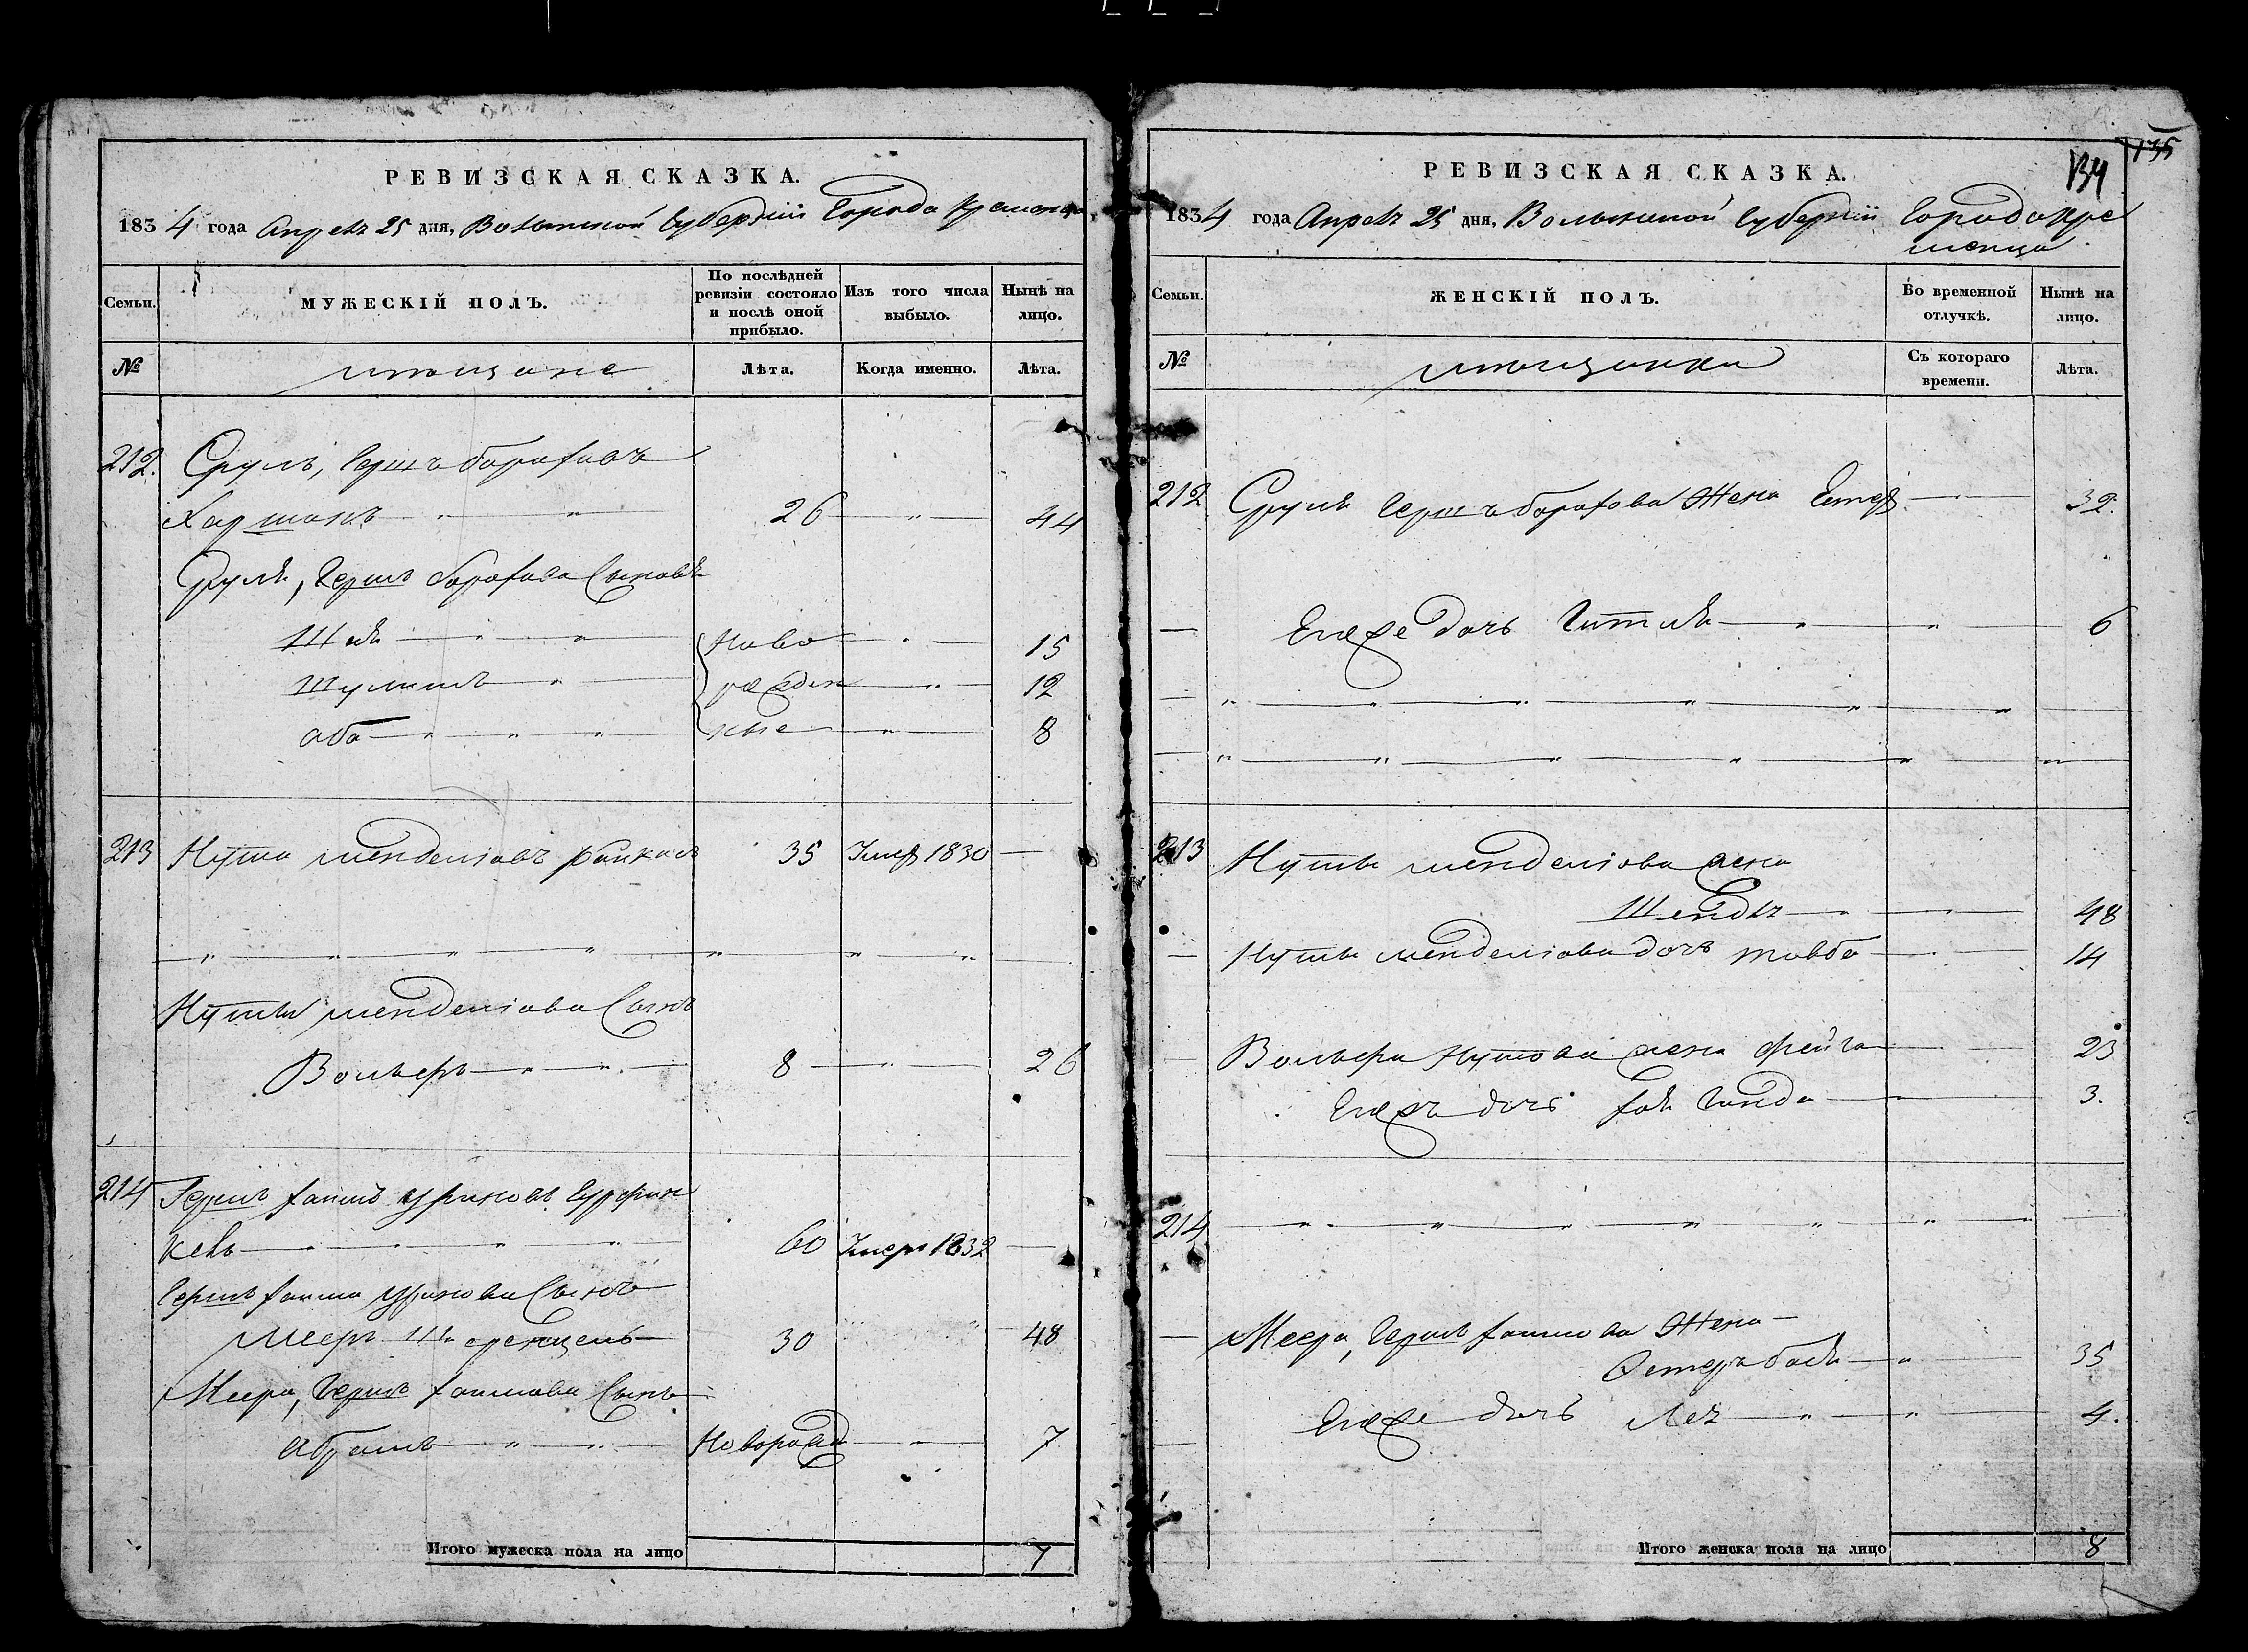 РЕВИЗСКАЯ СКАЗКА.
1834 года Апреля 25 дня, Волынской Губернии Города Кременца
Семьи.
МУЖЕСКІЙ ПОЛЪ.
По послѣдней ревизіи состояло и послѣ оной прибыло.
Изъ того числа выбыло.
Нынѣ на лицо.
№
мещане
Лѣта.
Когда именно.
Лѣта.
212. Сруль, Гершъ Бораховъ
26 44
Сруля, Гершъ Борахова Сыновья
Шая Ново 15
рожден 12
аба ные 8
213 Нута Менделіовъ 35 Умер 1830
Нуты Менделіова Сынъ
Вольеръ 8 26
214 Гершъ Хаимъ
60 Умеръ 1832
Гершъ Хаима Сынъ
Мееръ 30 48
Меера, Гершъ Хаимова Сынъ
Абрамъ Новорожд 7
Итого мужеска пола на лицо 7
РЕВИЗСКАЯ СКАЗКА.
134
135
1834 года Апреля 25 дня, Волынской Губерніи Города Кре
менца
Семьи.
ЖЕНСКІЙ ПОЛЪ.
Во временной отлучкѣ.
Нынѣ на лицо.
№
мещанки
Съ котораго времени.
Лѣта.
212 Сруля Гершъ Борахова Жена Естер 32.
Егоже дочь Гитля 6
213 Нуты Менделіова жена
Шендля 48
Нуты Менделіова дочь Товба 14
Вольера Нутова жена Фейга 23
Егожъ дочь Хая Гинда 3.
214
Меера, Гершъ Хаимова Жена
Естеръ бася 35
Егоже дочь Лея 4.
Итого женска пола на лицо 8